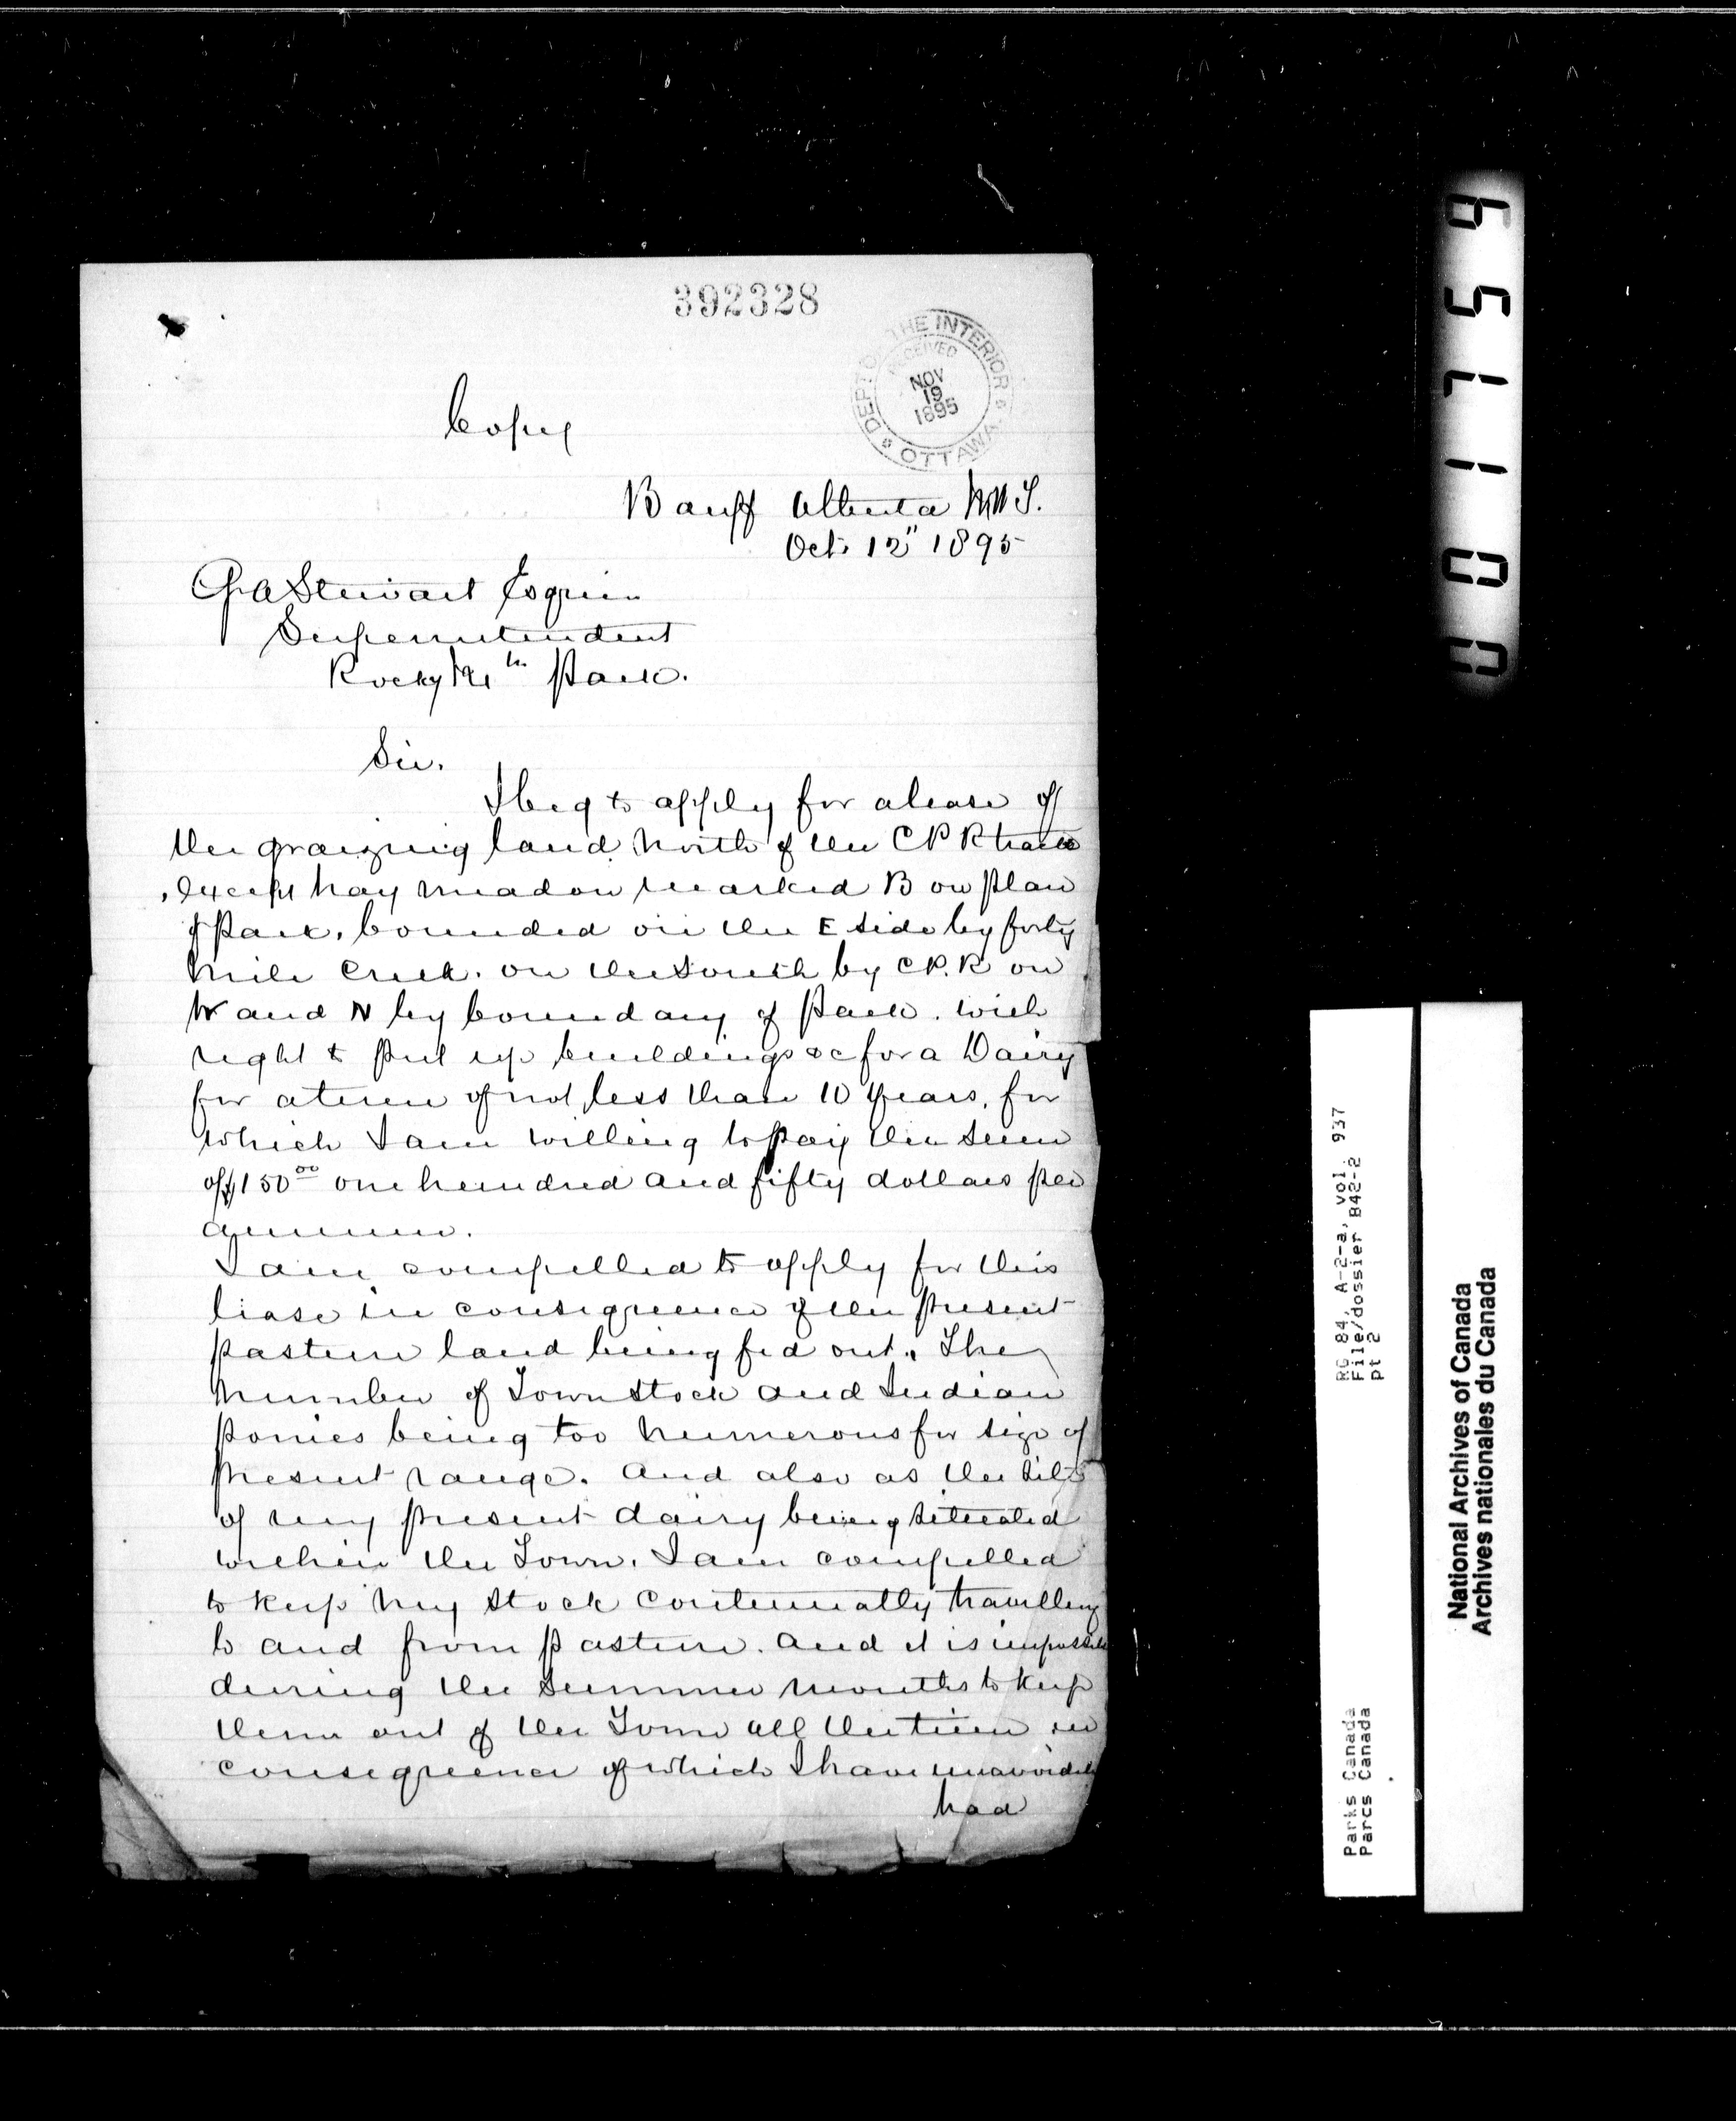 392328
DEPT OF THE INTERIOR
RECEIVED
NOV
19
1895
OTTAWA
Copy
Banff Alberta N.W.T.
Oct. 12" 1895
G A Stewart Esquire
Superintendent
Rocky Mtn Park.
Sir.
I beg to apply for a lease of
the graizing land North of the C P R track
, except hay meadow marked B on plan
of Park, bounded on the E side by forty
Mile Creek. on the South by C.P.R on
W and N by boundary of Park. with
right to put up buildings &c for a Dairy
for a term of not less than 10 Years, for
which I am willing to pay the sum
of $150.00 one hundred and fifty dollars per
annum.
I am compelled to apply for this
lease in consequence of the present
pasture land being fed out. The
number of Town Stock and Indian
ponies being too numerous for size of
present range. And also as the site
of my present dairy being situated
within the Town. I am compelled
to keep my stock continually travelling
to and from pasture. And it is impossible
during the Summer months to keep
them out of the Town all the time in
consequence of which I have unavoidably
had
001759
RG 84, A-2-a, vol. 937
File/dossier B42-2
pt 2
Parks Canada
Parcs Canada
National Archives of Canada
Archives nationales du Canada